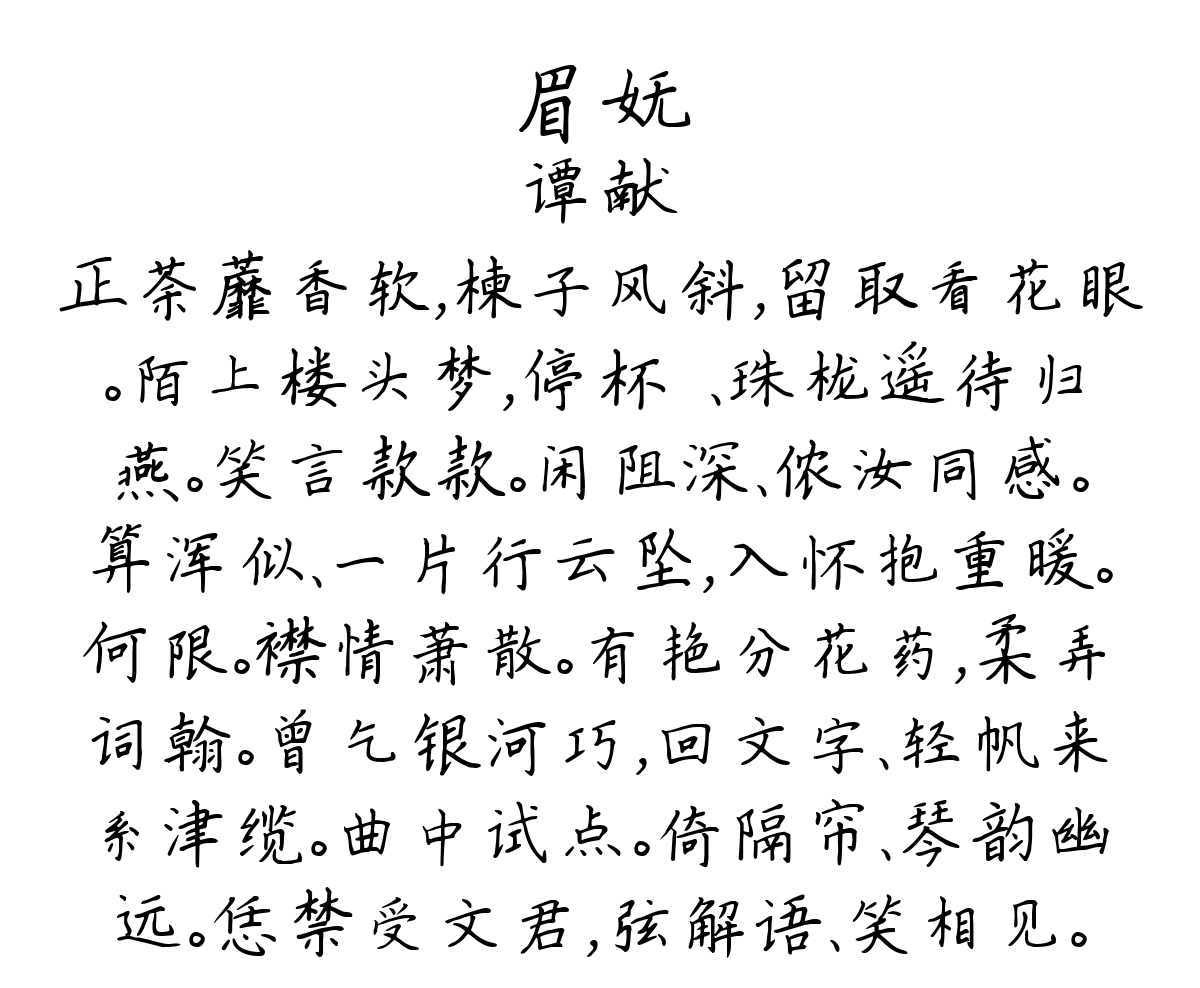 眉妩
谭献
正荼蘼香软,楝子风斜,留取看花眼
。陌上楼头梦,停杯 、珠栊遥待归
燕。笑言款款。闲阻深、侬汝同感。
算浑似、一片行云坠,入怀抱重暖。
何限。襟情萧散。有艳分花药,柔弄
词翰。曾乞银河巧,回文字、轻帆来
系津缆。曲中试点。倚隔帘、琴韵幽
远。恁禁受文君,弦解语、笑相见。